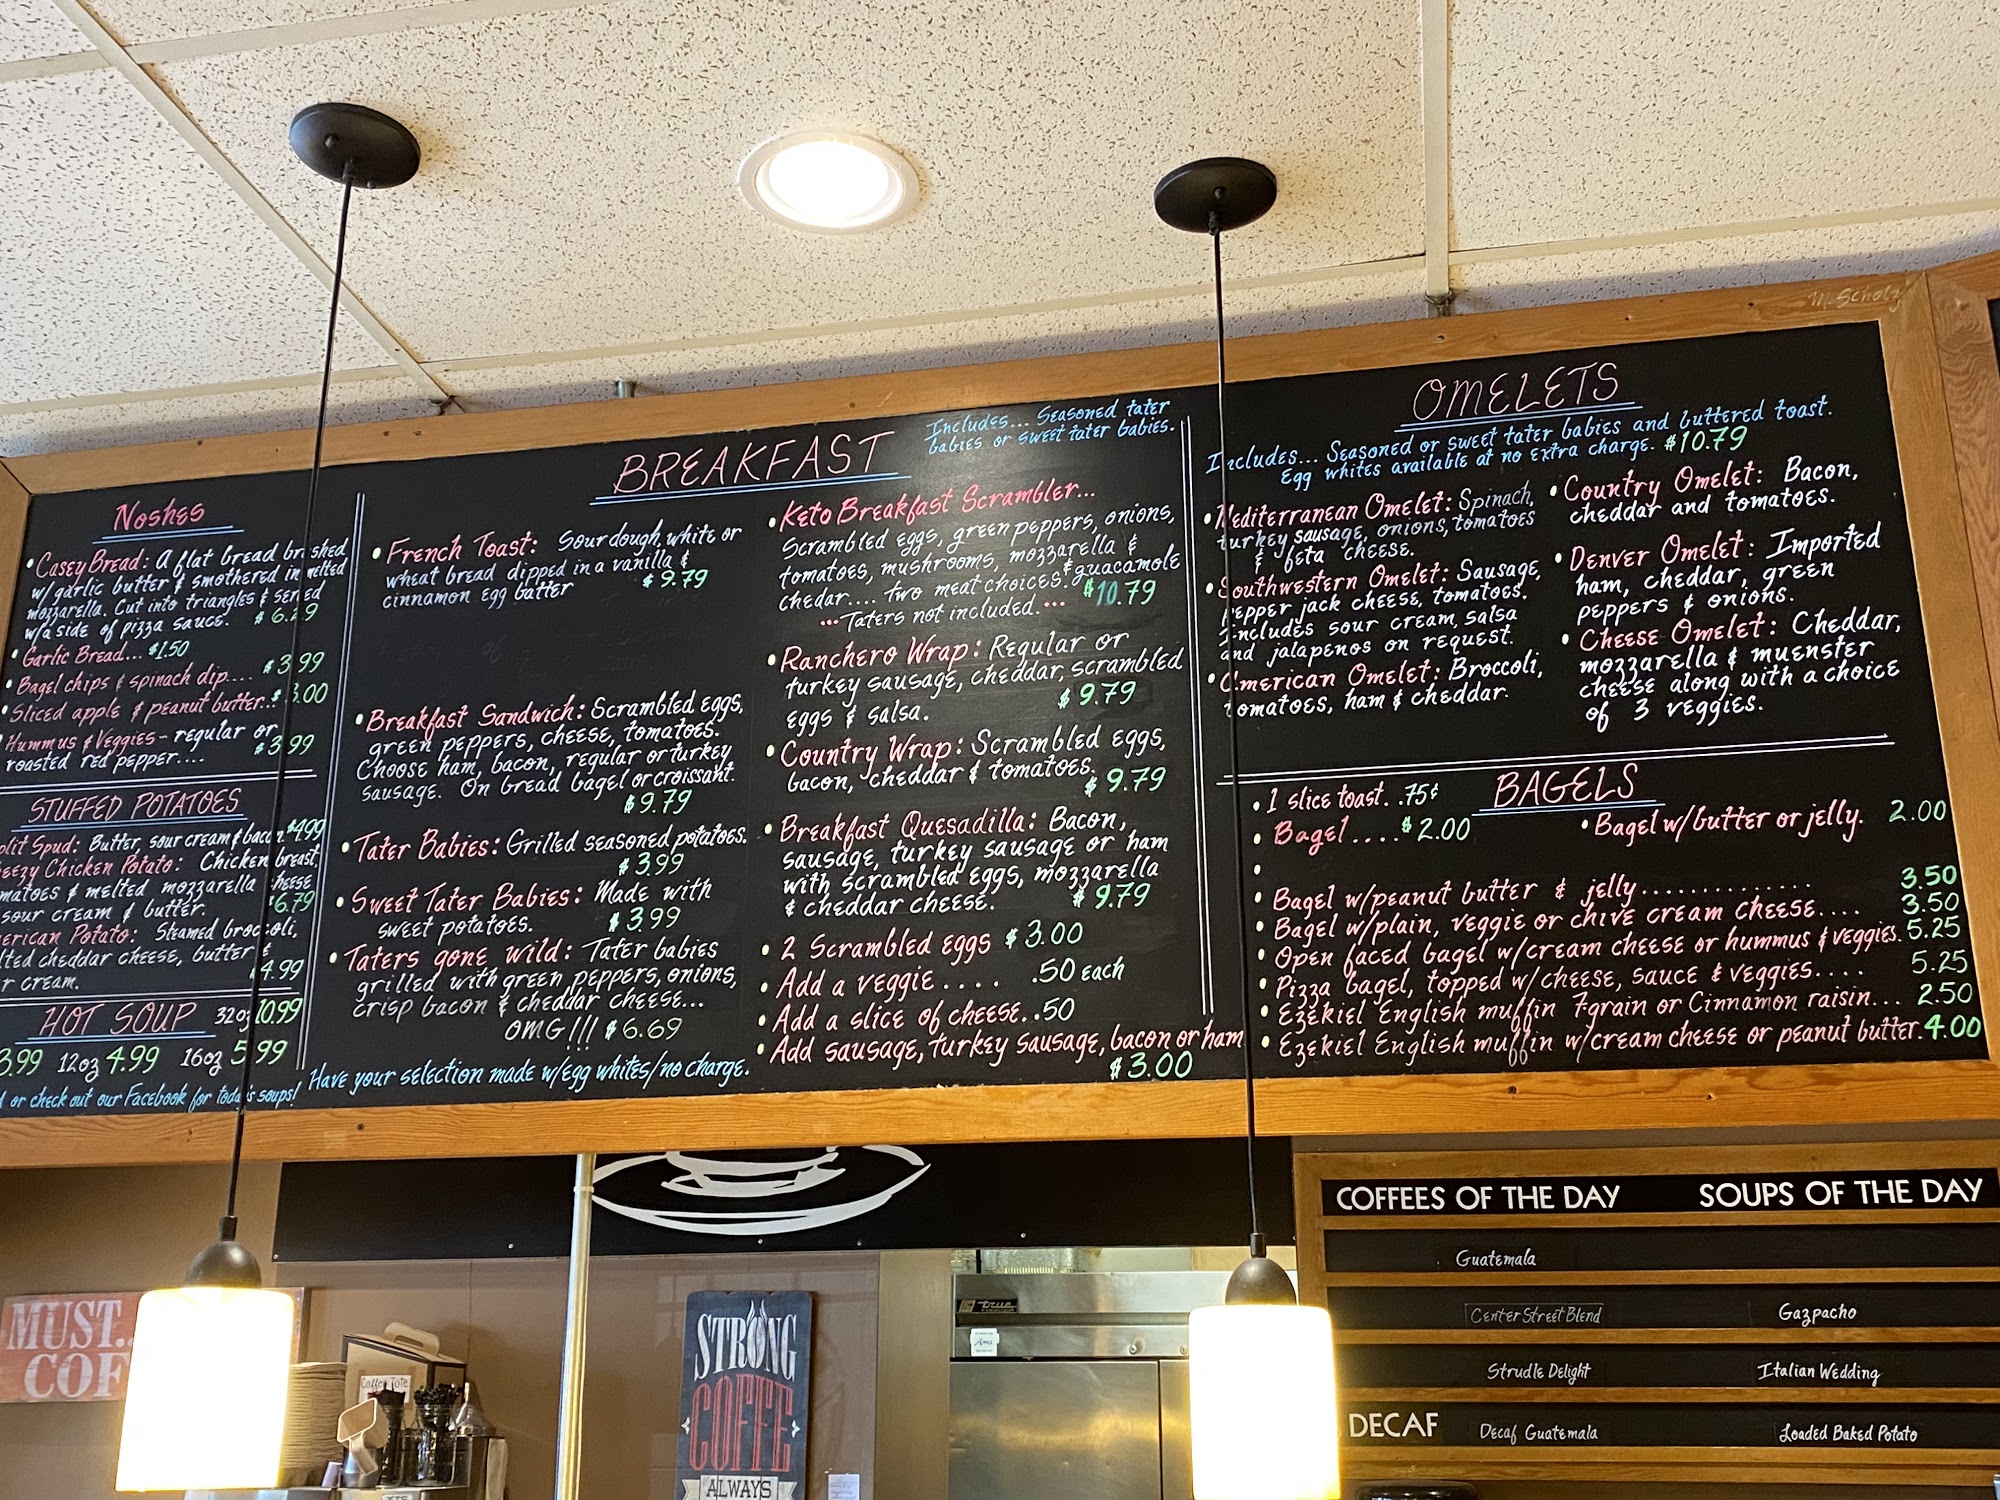 M. Scholz
Noshes
• Casey Bread: A flat bread brushed
w/garlic butter & smothered in melted
mozzarella. Cut into triangles & served
w/a side of pizza sauce. $6.29
• Garlic Bread... $1.50
• Bagel chips & spinach dip.... $3.99
• Sliced apple & peanut butter..$3.00
• Hummus & Veggies - regular or
roasted red pepper.... $3.99
STUFFED POTATOES
Spud: Butter, sour cream & bacon. $4.99
Chicken Potato: Chicken breast,
& melted mozzarella cheese
sour cream & butter. $6.79
Potato: Steamed broccoli,
cheddar cheese, butter &
cream. $4.99
HOT SOUP 32oz 10.99
3.99 12oz 4.99 16oz 5.99
or check out our Facebook for today's soups!
BREAKFAST
Includes... Seasoned tater
babies or sweet tater babies.
• French Toast: Sourdough, white or
wheat bread dipped in a vanilla &
cinnamon egg batter $9.79
• Breakfast Sandwich: Scrambled eggs,
green peppers, cheese, tomatoes.
Choose ham, bacon, regular or turkey
sausage. On bread bagel or croissant.
$9.79
• Tater Babies: Grilled seasoned potatoes.
$3.99
• Sweet Tater Babies: Made with
sweet potatoes. $3.99
• Taters gone wild: Tater babies
grilled with green peppers, onions,
crisp bacon & cheddar cheese...
OMG!!! $6.69
Have your selection made w/egg whites/no charge.
• Keto Breakfast Scrambler...
Scrambled eggs, green peppers, onions,
tomatoes, mushrooms, mozzarella &
chedar.... two meat choices! & guacamole
...Taters not included.... $10.79
• Ranchero Wrap: Regular or
turkey sausage, cheddar, scrambled
eggs & salsa. $9.79
• Country Wrap: Scrambled eggs,
bacon, cheddar & tomatoes.
$9.79
• Breakfast Quesadilla: Bacon,
sausage, turkey sausage or ham
with scrambled eggs, mozzarella
& cheddar cheese. $9.79
• 2 Scrambled eggs $3.00
• Add a veggie.... .50 each
• Add a slice of cheese. .50
• Add sausage, turkey sausage, bacon or ham
$3.00
OMELETS
Includes... Seasoned or sweet tater babies and buttered toast.
Egg whites available at no extra charge. $10.79
• Mediterranean Omelet: Spinach,
turkey sausage, onions, tomatoes
& feta cheese.
• Southwestern Omelet: Sausage,
pepper jack cheese, tomatoes.
Includes sour cream, salsa
and jalapenos on request.
• American Omelet: Broccoli,
tomatoes, ham & cheddar.
• Country Omelet: Bacon,
cheddar and tomatoes.
• Denver Omelet: Imported
ham, cheddar, green
peppers & onions.
• Cheese Omelet: Cheddar,
mozzarella & muenster
cheese along with a choice
of 3 veggies.
BAGELS
• 1 slice toast. .75¢
• Bagel....$2.00
• Bagel w/butter or jelly. 2.00
• Bagel w/peanut butter & jelly.............. 3.50
• Bagel w/plain, veggie or chive cream cheese.... 3.50
• Open faced bagel w/cream cheese or hummus & veggies. 5.25
• Pizza bagel, topped w/cheese, sauce & veggies.... 5.25
• Ezekiel English muffin 7-grain or Cinnamon raisin... 2.50
• Ezekiel English muffin w/cream cheese or peanut butter. 4.00
COFFEES OF THE DAY
SOUPS OF THE DAY
Guatemala
Center Street Blend
Gazpacho
Strudle Delight
Italian Wedding
DECAF
Decaf Guatemala
Loaded Baked Potato
MUST..
COF
Coffee Tote
STRONG
COFFE
ALWAYS
true